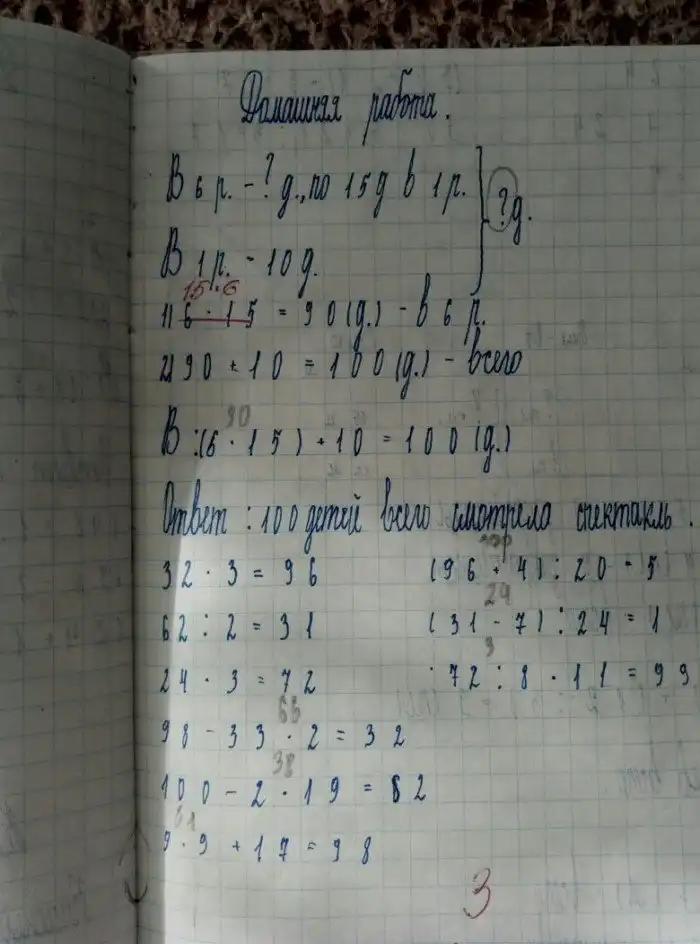 Домашняя работа.
В 6 р. - ? д., по 15 д в 1 р.
? д.
В 1 р. - 10 д.
15 · 6
1) 6 · 15 = 90 (д.) - в 6 р.
2) 90 + 10 = 100 (д.) - всего
90
В :(6 · 15) + 10 = 100 (д.)
Ответ : 100 детей всего смотрело спектакль.
32 · 3 = 96
100
(96 + 4) : 20 = 5
62 : 2 = 31
24
(31 - 7) : 24 = 1
24 · 3 = 72
9
72 : 8 · 11 = 99
66
98 - 33 · 2 = 32
38
100 - 2 · 19 = 62
81
9 · 9 + 17 = 98
3